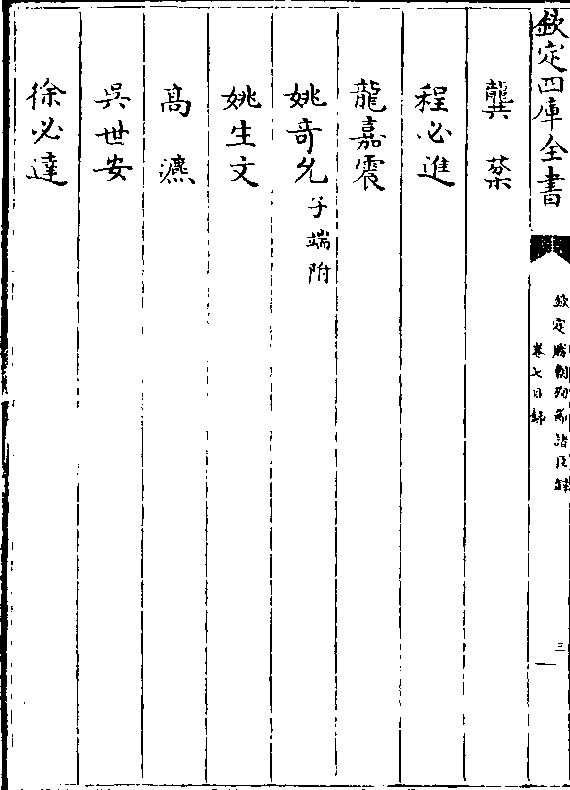 欽定四庫全書
欽定勝朝殉節諸臣錄
卷七目錄
三
龔棻
程必進
龍嘉震
姚奇允子端附
姚生文
高瀌
吳世安
徐必達